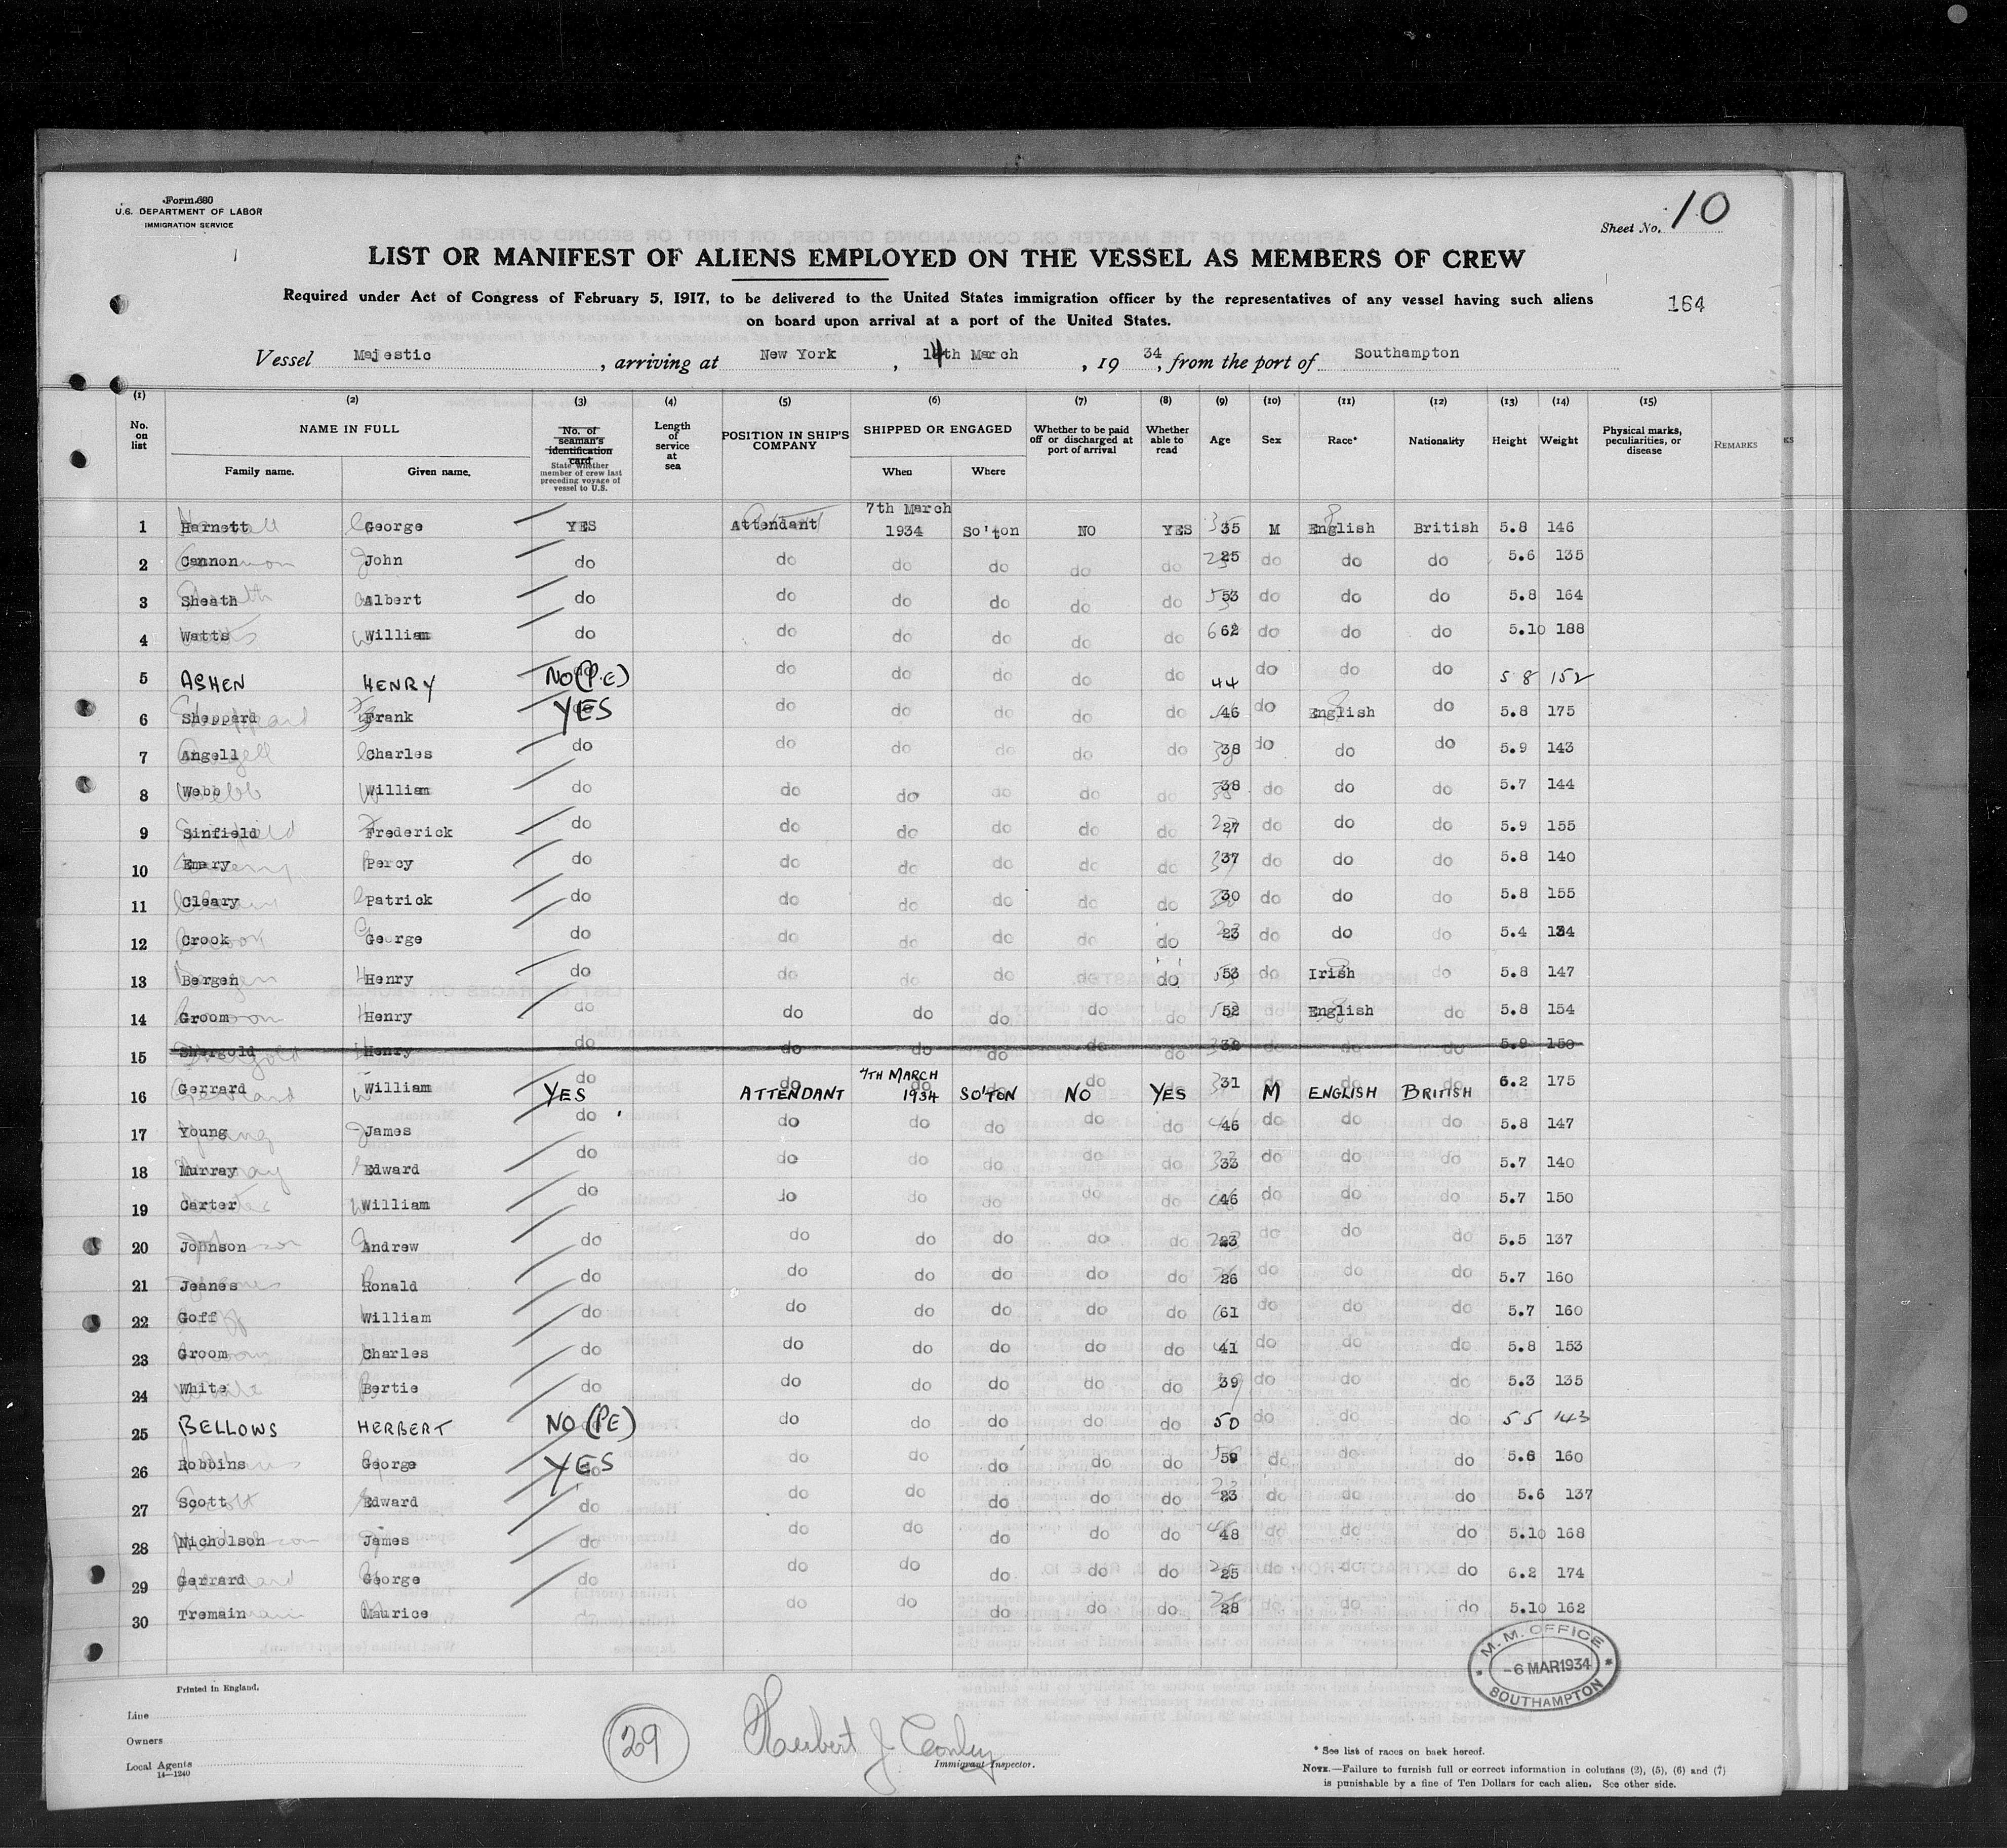 Form 680
U.S. DEPARTMENT OF LABOR
IMMIGRATION SERVICE
Sheet No. 10
LIST OR MANIFEST OF ALIENS EMPLOYED ON THE VESSEL AS MEMBERS OF CREW
Required under Act of Congress of February 5, 1917, to be delivered to the United States immigration officer by the representatives of any vessel having such aliens
on board upon arrival at a port of the United States.
164
Vessel Majestic, arriving at New York, 14th March, 1934, from the port of Southampton
(1) (2) (3) (4) (5) (6) (7) (8) (9) (10) (11) (12) (13) (14) (15)
No. on list
NAME IN FULL
Family name. Given name.
No. of seaman's identification card
State whether member of crew last preceding voyage of vessel to U.S.
Length of service at sea
POSITION IN SHIP'S COMPANY
SHIPPED OR ENGAGED
When Where
Whether to be paid off or discharged at port of arrival
Whether able to read
Age Sex Race* Nationality Height Weight
Physical marks, peculiarities, or disease
REMARKS
1 Harnett George YES Attendant 7th March 1934 So'ton NO YES 35 M English British 5.8 146
2 Cannon John do do do do do do 25 do do do 5.6 135
3 Sheath Albert do do do do do do 53 do do do 5.8 164
4 Watts William do do do do do do 62 do do do 5.10 188
5 ASHEN HENRY NO (P.E) do do do do do 44 do do do 5 8 152
6 Sheppard Frank YES do do do do do 46 do English do 5.8 175
7 Angell Charles do do do do do do 38 do do do 5.9 143
8 Webb William do do do do do do 38 do do do 5.7 144
9 Sinfield Frederick do do do do do do 27 do do do 5.9 155
10 Emery Percy do do do do do do 37 do do do 5.8 140
11 Cleary Patrick do do do do do do 30 do do do 5.8 155
12 Crook George do do do do do do 23 do do do 5.4 134
13 Bergen Henry do do do do do do 53 do Irish do 5.8 147
14 Groom Henry do do do do do do 52 do English do 5.8 154
15 Shergold Henry do do do do do do 32 do do do 5.9 150
16 Gerrard William YES ATTENDANT 7TH MARCH 1934 SO'TON NO YES 31 M ENGLISH BRITISH 6.2 175
17 Young James do do do do do do 46 do do do 5.8 147
18 Murray Edward do do do do do do 33 do do do 5.7 140
19 Carter William do do do do do do 46 do do do 5.7 150
20 Johnson Andrew do do do do do do 23 do do do 5.5 137
21 Jeanes Ronald do do do do do do 26 do do do 5.7 160
22 Goff William do do do do do do 61 do do do 5.7 160
23 Groom Charles do do do do do do 41 do do do 5.8 153
24 White Bertie do do do do do do 39 do do do 5.3 135
25 BELLOWS HERBERT NO (PE) do do do do do 50 do do do 5 5 143
26 Robbins George YES do do do do do 59 do do do 5.6 160
27 Scott Edward do do do do do do 23 do do do 5.6 137
28 Nicholson James do do do do do do 48 do do do 5.10 168
29 Gerrard George do do do do do do 25 do do do 6.2 174
30 Tremain Maurice do do do do do 28 do do do 5.10 162
M.M. OFFICE
-6 MAR 1934
SOUTHAMPTON
Printed in England.
Line
Owners
Local Agents
14—1240
29
Herbert J. Conley
Immigrant Inspector.
* See list of races on back hereof.
NOTE.—Failure to furnish full or correct information in columns (2), (5), (6) and (7)
is punishable by a fine of Ten Dollars for each alien. See other side.